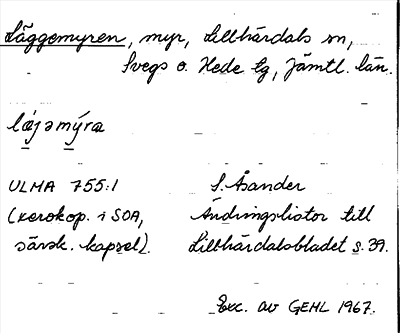 Läggemyren, myr, Lillhärdals sn,
Svegs o. Hede tg, Jämtl. län.
läjamýra
ULMA 755:1 S. Åsander
(xerokop. i SOA, Ändringslistor till
särsk. kapsel). Lillhärdalsbladet s. 39.
Exc. av GEHL 1967.